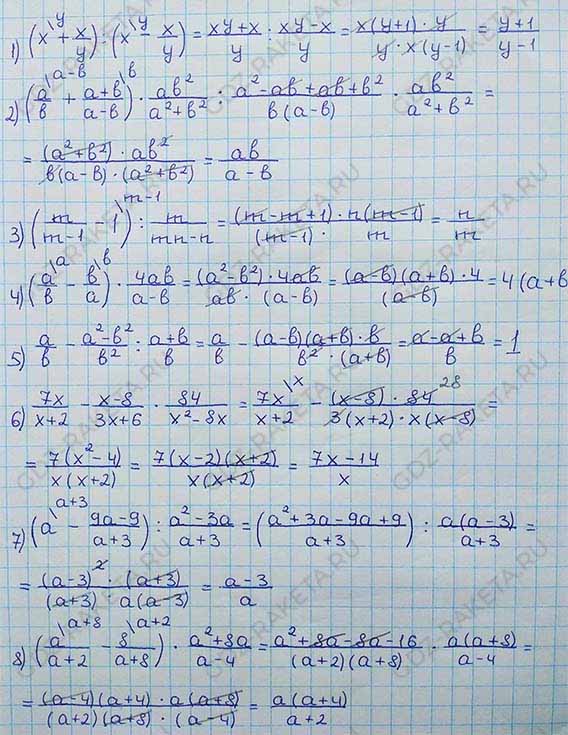 1) (x\ʸ + x/y) : (x\ʸ - x/y) = (xy+x)/y : (xy-x)/y = (x(y+1)·y)/(y·x(y-1)) = (y+1)/(y-1)
2) (a/b\ᵃ⁻ᵇ + (a+b)/(a-b)\ᵇ) · ab²/(a²+b²) : (a²-ab+ab+b²)/(b(a-b)) · ab²/(a²+b²) =
= ((a²+b²)·ab²)/(b(a-b)·(a²+b²)) = ab/(a-b)
3) (m/(m-1) - 1\ᵐ⁻¹) : m/(mn-n) = ((m-m+1)·n(m-1))/((m-1)·m) = n/m
4) (a/b\ᵃ - b/a\ᵇ) · 4ab/(a-b) = ((a²-b²)·4ab)/(ab·(a-b)) = ((a-b)(a+b)·4)/(a-b) = 4(a+b
5) a/b - (a²-b²)/b² : (a+b)/b = a/b - ((a-b)(a+b)·b)/(b²·(a+b)) = (a-a+b)/b = 1
6) 7x/(x+2) - (x-8)/(3x+6) · 84/(x²-8x) = 7x/(x+2)\ˣ - ((x-8)·84 28)/(3(x+2)·x(x-8)) =
= 7(x²-4)/(x(x+2)) = 7(x-2)(x+2)/(x(x+2)) = (7x-14)/x
7) (a\ᵃ⁺³ - (9a-9)/(a+3)) : (a²-3a)/(a+3) = ((a²+3a-9a+9)/(a+3)) : a(a-3)/(a+3) =
= ((a-3)²·(a+3))/((a+3)·a(a-3)) = (a-3)/a
8) (a/(a+2)\ᵃ⁺⁸ - 8/(a+8)\ᵃ⁺²) · (a²+8a)/(a-4) = (a²+8a-8a-16)/((a+2)(a+8)) · a(a+8)/(a-4) =
= ((a-4)(a+4)·a(a+8))/((a+2)(a+8)·(a-4)) = a(a+4)/(a+2)
GDZ-RAKETA.RU